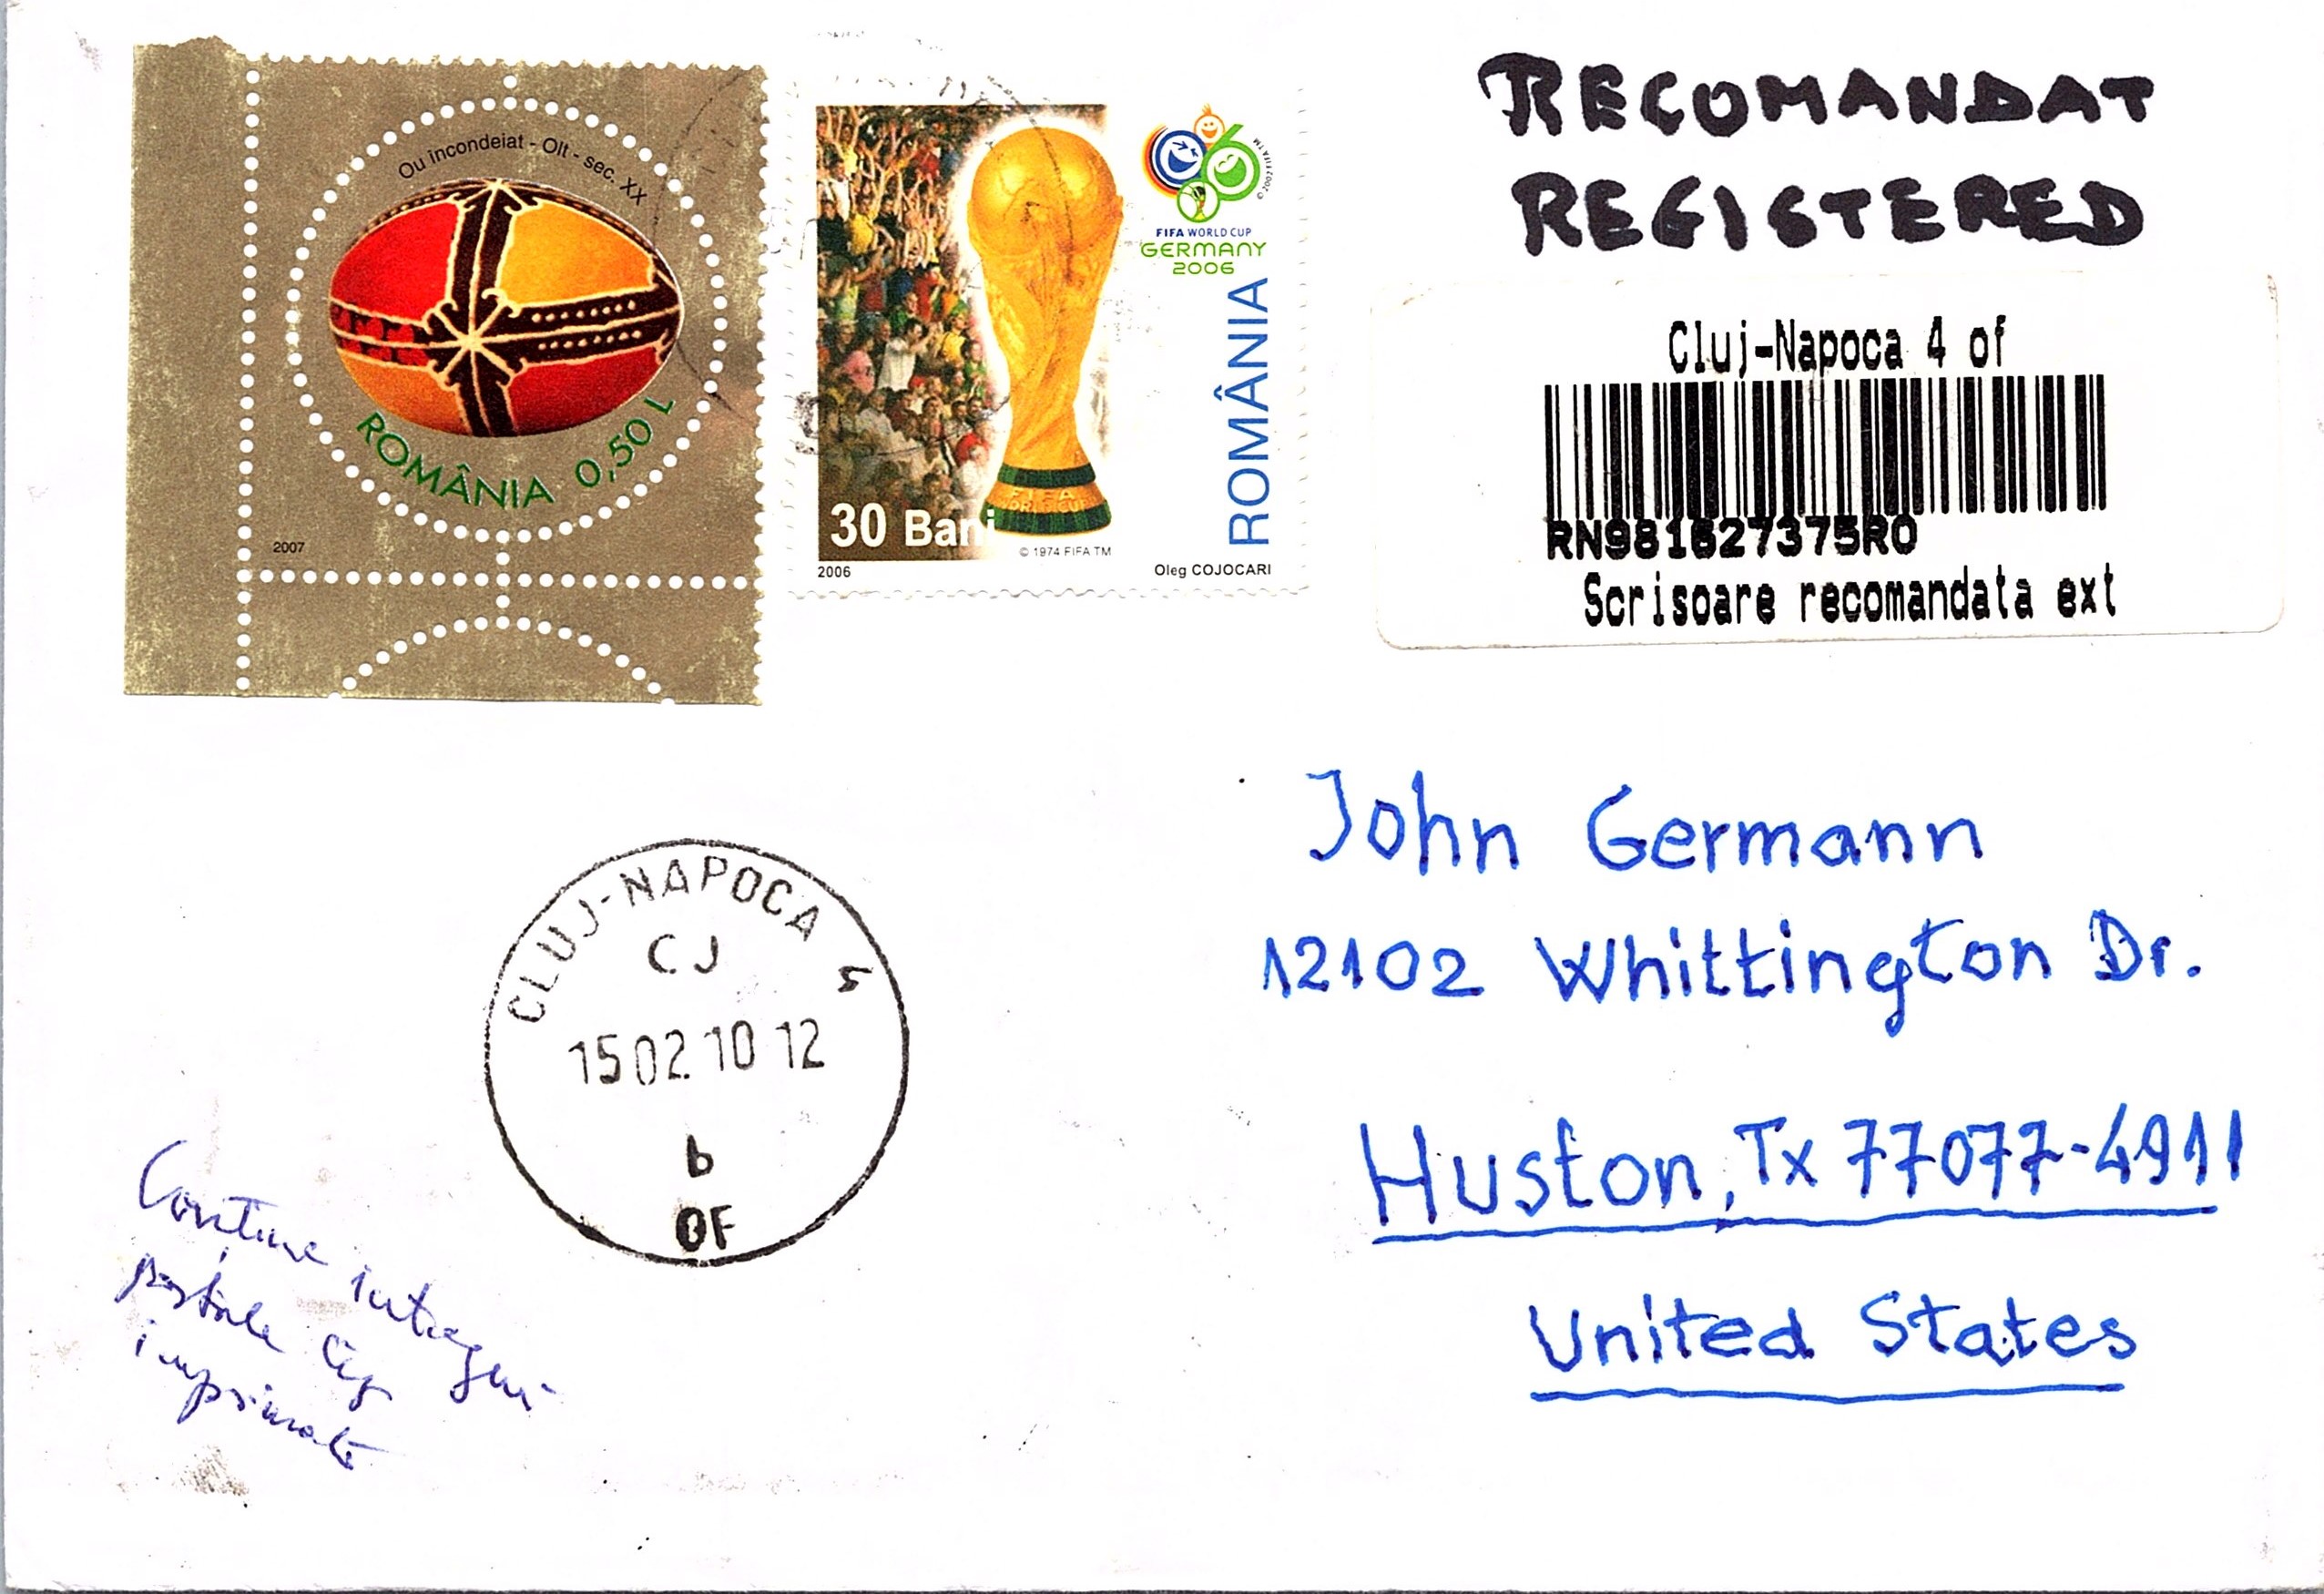 Ou încondeiat - Olt - sec. XX
ROMÂNIA 0,50 L
2007
FIFA WORLD CUP
GERMANY
2006
ROMÂNIA
30 Bani
© 1974 FIFA TM
2006
Oleg COJOCARI
RECOMANDAT
REGISTERED
Cluj-Napoca 4 of
RN981627375RO
Scrisoare recomandata ext
John Germann
12102 Whittington Dr.
Huston, Tx 77077-4911
United States
CLUJ-NAPOCA 5
CJ
15 02 10 12
b
OF
Conține întreguri
poștale
imprimate